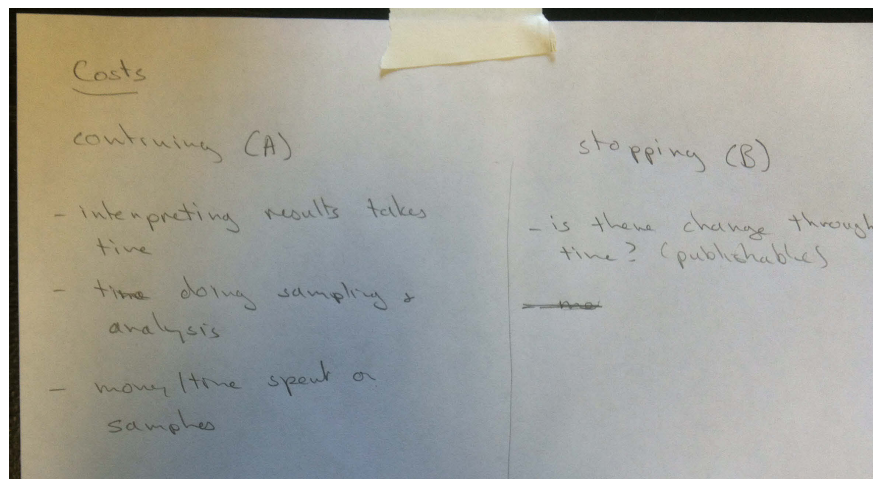 Costs
continuing (A)
- interpreting results takes
time
- time doing sampling &
analysis
- money/time spent on
samples
stopping (B)
- is there change through
time? (publishable)